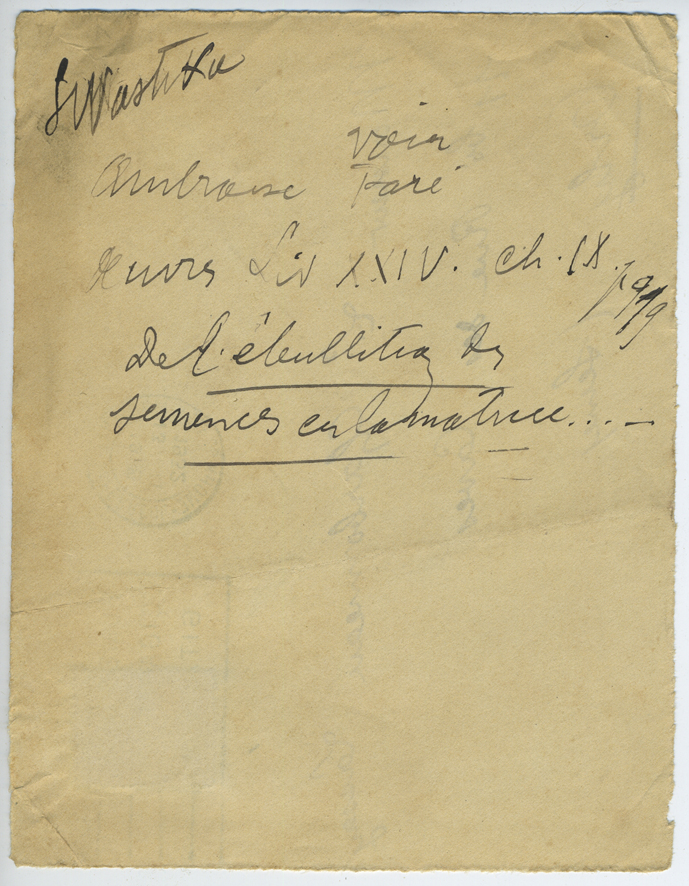 Swastika
voir
Ambroise Paré
Œuvres Liv XXIV. ch. IX.
De l'ébullition des
semences en la matrice....